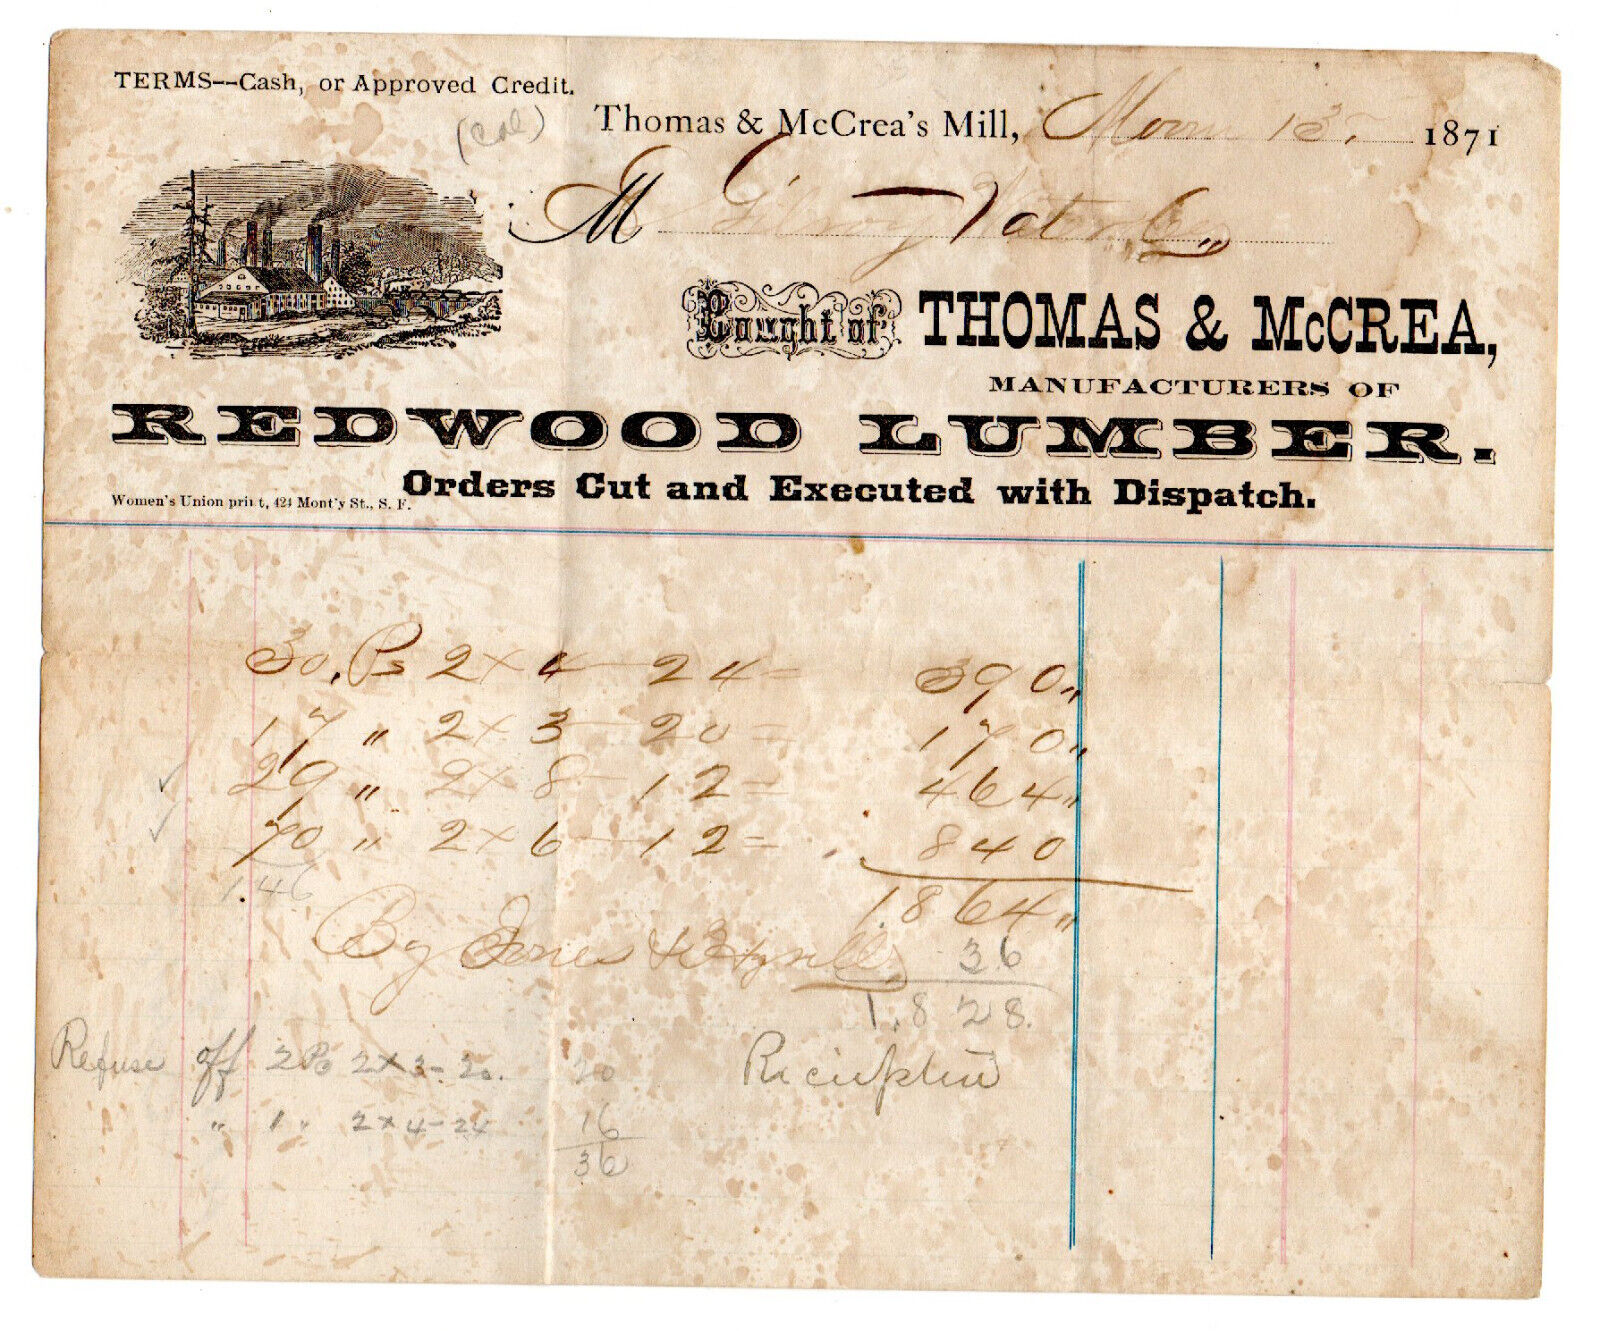 TERMS--Cash, or Approved Credit.
(Cal)
Thomas & McCrea's Mill, 13, 1871
M Gilroy Water Co,,
Bought of THOMAS & McCREA,
MANUFACTURERS OF
REDWOOD LUMBER.
Orders Cut and Executed with Dispatch.
Women's Union print, 424 Mont'y St., S. F.
30, Ps 2 x 4 - 24 = 390,,
17 ,, 2 x 3 - 20 = 170,,
✓ 29 ,, 2 x 8 - 12 = 464,,
✓ 70 ,, 2 x 6 - 12 = 840
146
1864,,
By Jones &
36
1,828.
Refuse off 2 Ps 2 x 3 - 20. 20
,, 1 ,, 2 x 4 - 24 16
36